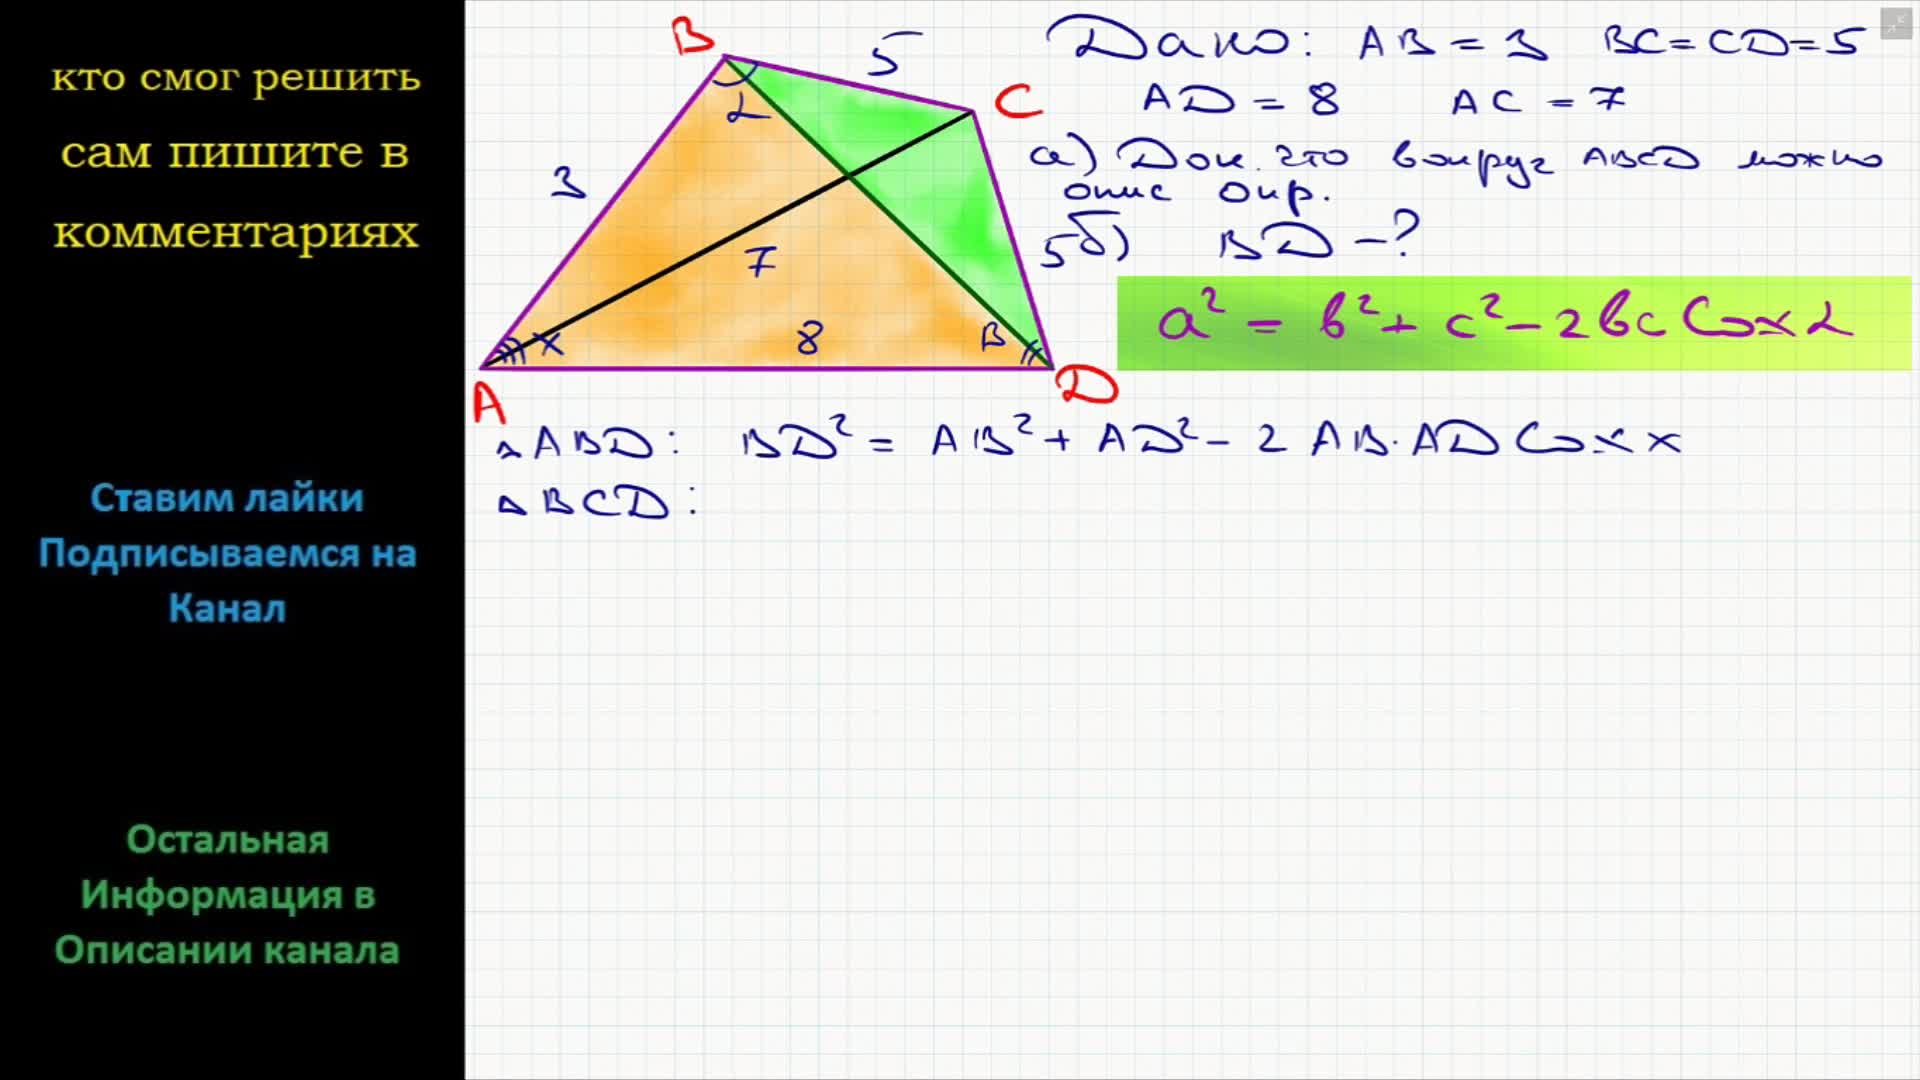 кто смог решить
сам пишите в
комментариях
Ставим лайки
Подписываемся на
Канал
Остальная
Информация в
Описании канала
B
5
C
α
3
7
5
8
x
β
A
D
Дано: AB = 3 BC = CD = 5
AD = 8 AC = 7
а) Док. что вокруг ABCD можно
опис окр.
б) BD - ?
a² = b² + c² - 2bc Cos α
△ABD: BD² = AB² + AD² - 2 AB · AD Cos x
△BCD: